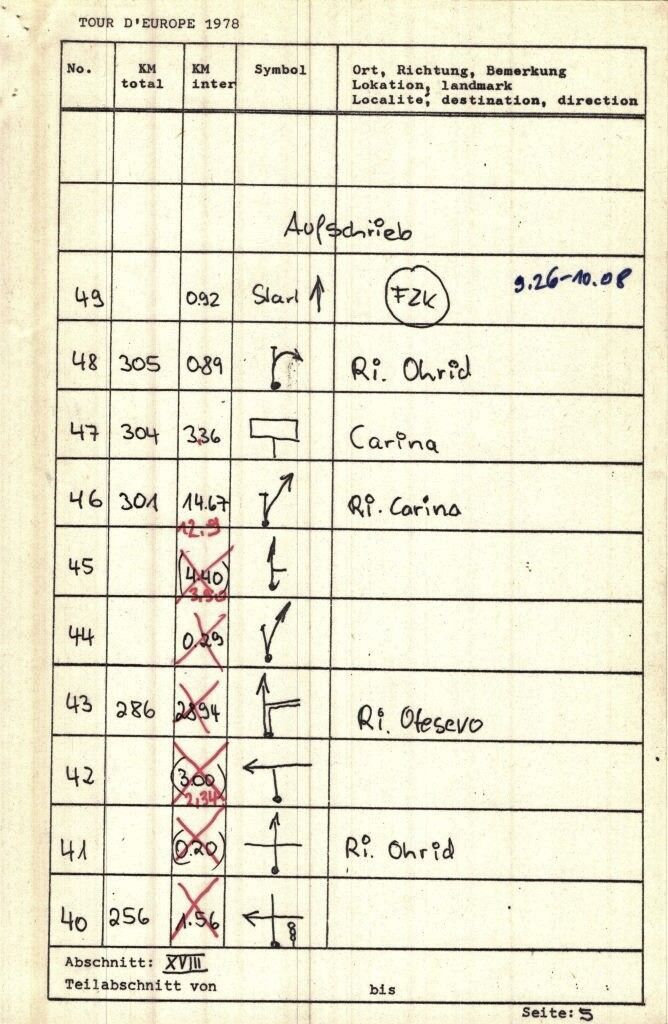 TOUR D'EUROPE 1978
No. KM total KM inter Symbol Ort, Richtung, Bemerkung
Lokation, landmark
Localite, destination, direction
Aufschrieb
49 0.92 Start FZK 9.26-10.08
48 305 0.89 Ri. Ohrid
47 304 3.36 Carina
46 301 14.67 Ri. Carina
12.9
45 (4.40)
3.90
44 0.29
43 286 28.94 Ri. Otesevo
42 (3.00)
2,34
41 (0.20) Ri. Ohrid
40 256 1.56
Abschnitt: XVIII
Teilabschnitt von bis
Seite: 5